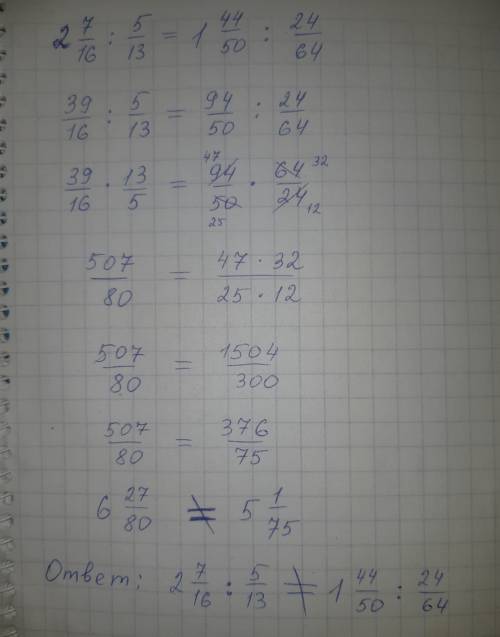 2 7/16 : 5/13 = 1 44/50 : 24/64
39/16 : 5/13 = 94/50 : 24/64
39/16 · 13/5 = 94/50 · 64/24 47 25 32 12
507/80 = 47 · 32/25 · 12
507/80 = 1504/300
507/80 = 376/75
6 27/80 ≠ 5 1/75
Ответ: 2 7/16 : 5/13 ≠ 1 44/50 : 24/64